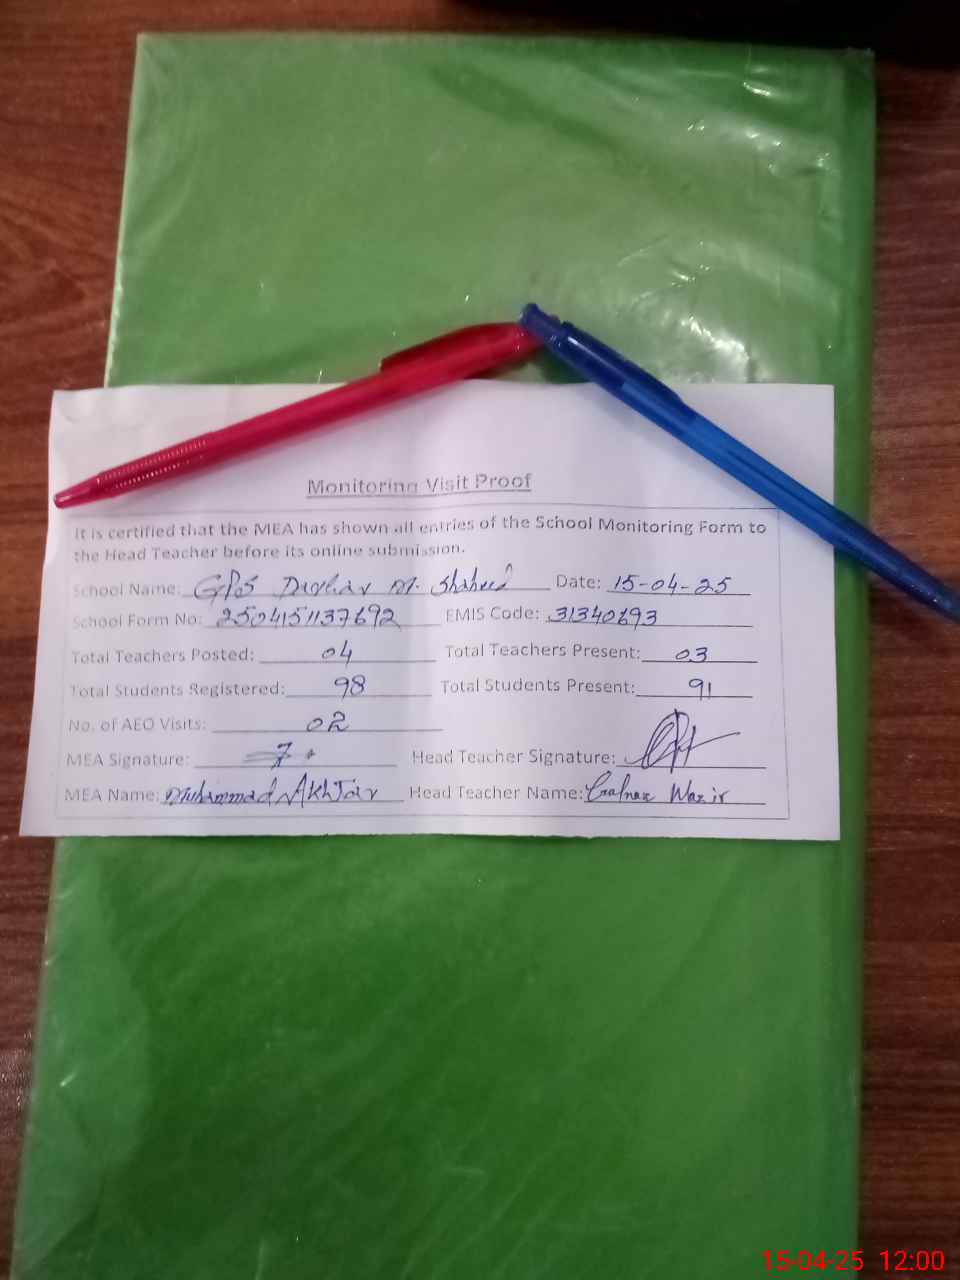 Monitoring Visit Proof
It is certified that the MEA has shown all entries of the School Monitoring Form to
the Head Teacher before its online submission.
School Name: GPS Darbar M. Shaheed Date: 15-04-25
School Form No: 2504151137692 EMIS Code: 31340693
Total Teachers Posted: 04 Total Teachers Present: 03
Total Students Registered: 98 Total Students Present: 91
No. of AEO Visits: 02
MEA Signature: Head Teacher Signature:
MEA Name: Muhammad Akhtar Head Teacher Name: Gulnaz Wazir
15-04-25 12:00